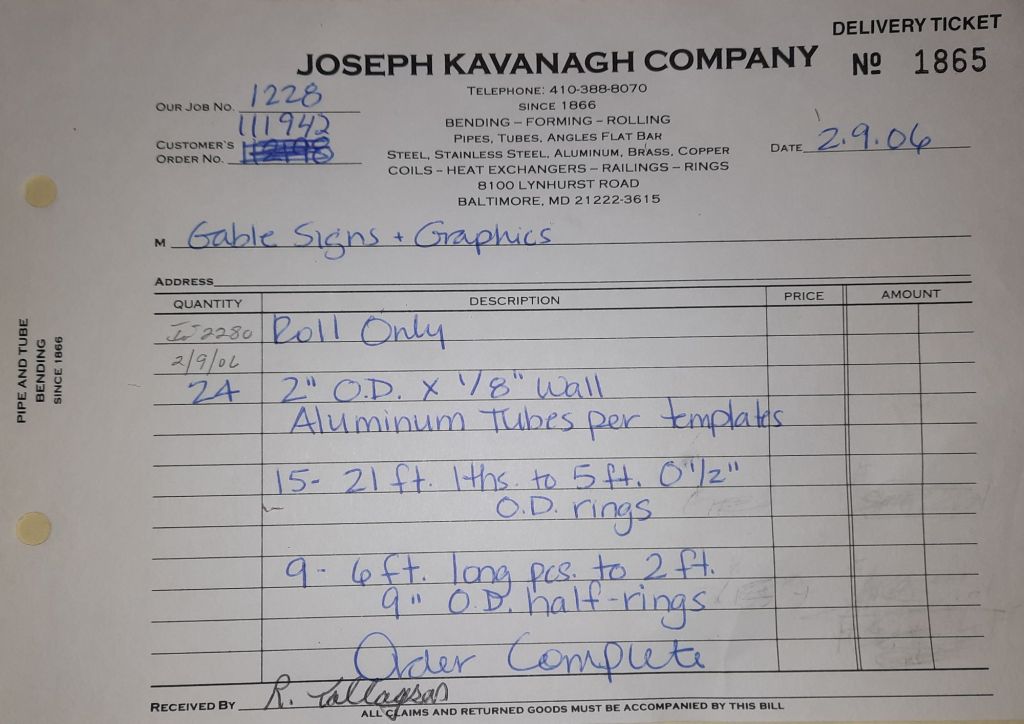 DELIVERY TICKET
JOSEPH KAVANAGH COMPANY
Nº 1865
TELEPHONE: 410-388-8070
SINCE 1866
BENDING – FORMING – ROLLING
PIPES, TUBES, ANGLES FLAT BAR
STEEL, STAINLESS STEEL, ALUMINUM, BRASS, COPPER
COILS – HEAT EXCHANGERS – RAILINGS – RINGS
8100 LYNHURST ROAD
BALTIMORE, MD 21222-3615
OUR JOB NO. 1228
111942
CUSTOMER'S
ORDER NO.
DATE 2.9.06
M Gable Signs + Graphics
ADDRESS
QUANTITY DESCRIPTION PRICE AMOUNT
2280 Roll Only
2/9/06
24 2" O.D. x 1/8" Wall
Aluminum Tubes per templates
15- 21 ft. lths. to 5 ft. 0 1/2"
O.D. rings
9- 6 ft. long pcs. to 2 ft.
9" O.D. half-rings
Order Complete
RECEIVED BY R.
ALL CLAIMS AND RETURNED GOODS MUST BE ACCOMPANIED BY THIS BILL
PIPE AND TUBE
BENDING
SINCE 1866